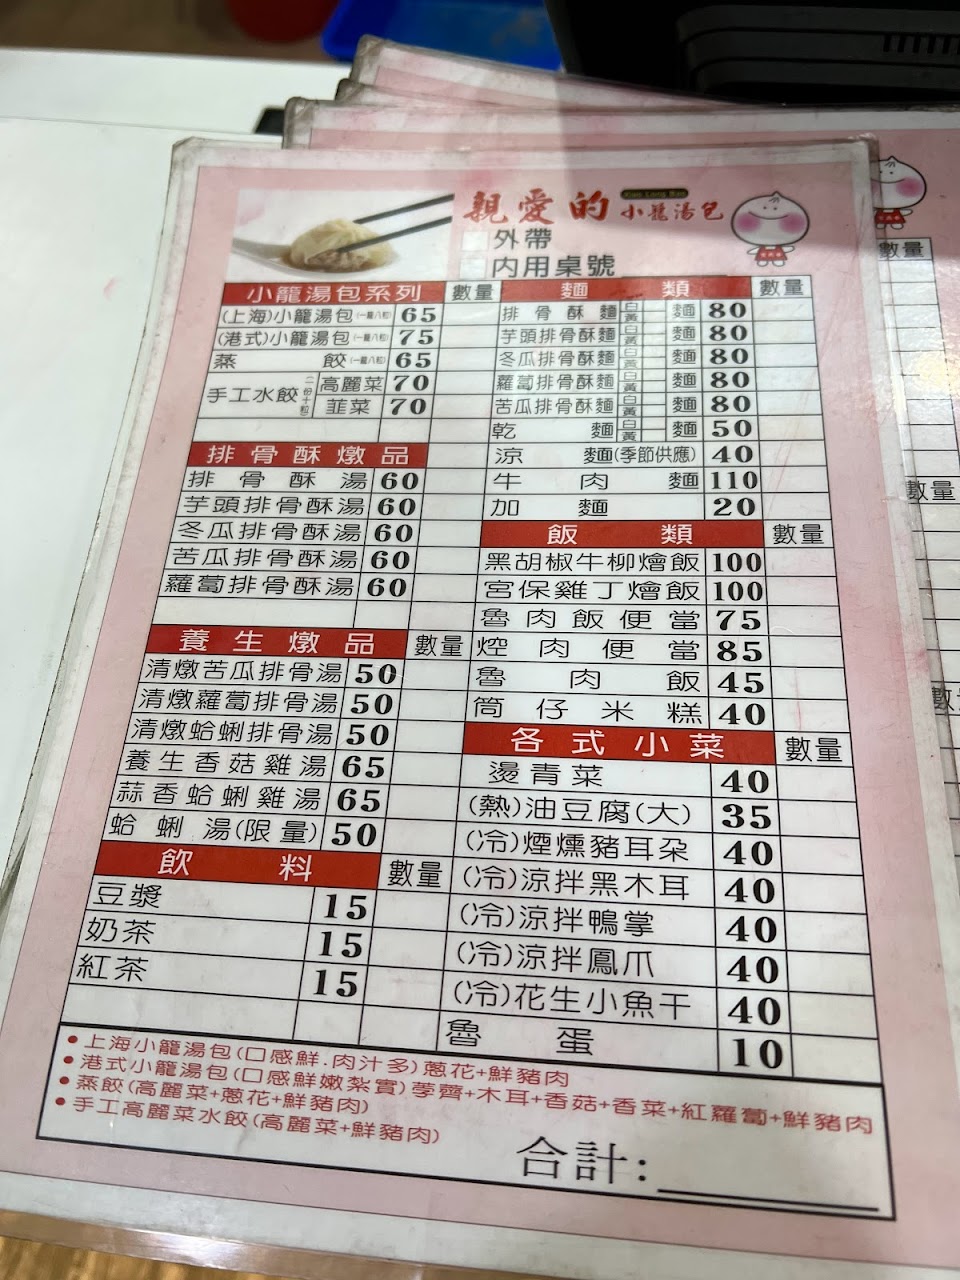 親愛的 小籠湯包
Xiao Long Bao
外帶
內用桌號
小籠湯包系列 數量
(上海)小籠湯包(一籠八粒) 65
(港式)小籠湯包(一籠八粒) 75
蒸餃(一籠八粒) 65
手工水餃(一份十粒) 高麗菜 70
韮菜 70
排骨酥燉品
排骨酥湯 60
芋頭排骨酥湯 60
冬瓜排骨酥湯 60
苦瓜排骨酥湯 60
蘿蔔排骨酥湯 60
養生燉品 數量
清燉苦瓜排骨湯 50
清燉蘿蔔排骨湯 50
清燉蛤蜊排骨湯 50
養生香菇雞湯 65
蒜香蛤蜊雞湯 65
蛤蜊湯(限量) 50
飲料 數量
豆漿 15
奶茶 15
紅茶 15
麵類 數量
排骨酥麵 白 黃 麵 80
芋頭排骨酥麵 白 黃 麵 80
冬瓜排骨酥麵 白 黃 麵 80
蘿蔔排骨酥麵 白 黃 麵 80
苦瓜排骨酥麵 白 黃 麵 80
乾麵 白 黃 麵 50
涼麵(季節供應) 40
牛肉麵 110
加麵 20
飯類 數量
黑胡椒牛柳燴飯 100
宮保雞丁燴飯 100
魯肉飯便當 75
焢肉便當 85
魯肉飯 45
筒仔米糕 40
各式小菜 數量
燙青菜 40
(熱)油豆腐(大) 35
(冷)煙燻豬耳朵 40
(冷)涼拌黑木耳 40
(冷)涼拌鴨掌 40
(冷)涼拌鳳爪 40
(冷)花生小魚干 40
魯蛋 10
•上海小籠湯包(口感鮮.肉汁多)蔥花+鮮豬肉
•港式小籠湯包(口感鮮嫩紮實)荸薺+木耳+香菇+香菜+紅蘿蔔+鮮豬肉
•蒸餃(高麗菜+蔥花+鮮豬肉)
•手工高麗菜水餃(高麗菜+鮮豬肉)
合計:
數量
數量
數